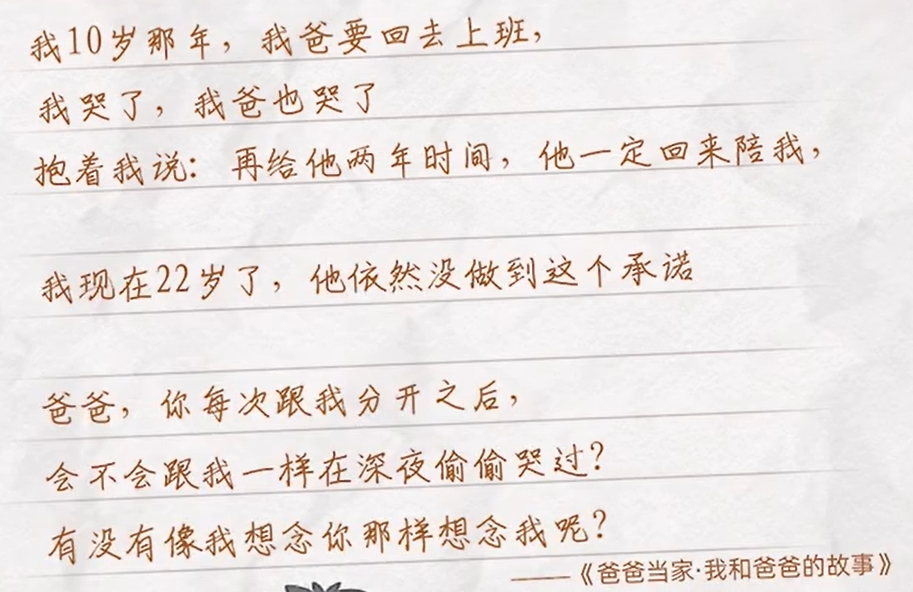 我10岁那年，我爸要回去上班，
我哭了，我爸也哭了
抱着我说：再给他两年时间，他一定回来陪我，
我现在22岁了，他依然没做到这个承诺
爸爸，你每次跟我分开之后，
会不会跟我一样在深夜偷偷哭过？
有没有像我想念你那样想念我呢？
——《爸爸当家·我和爸爸的故事》